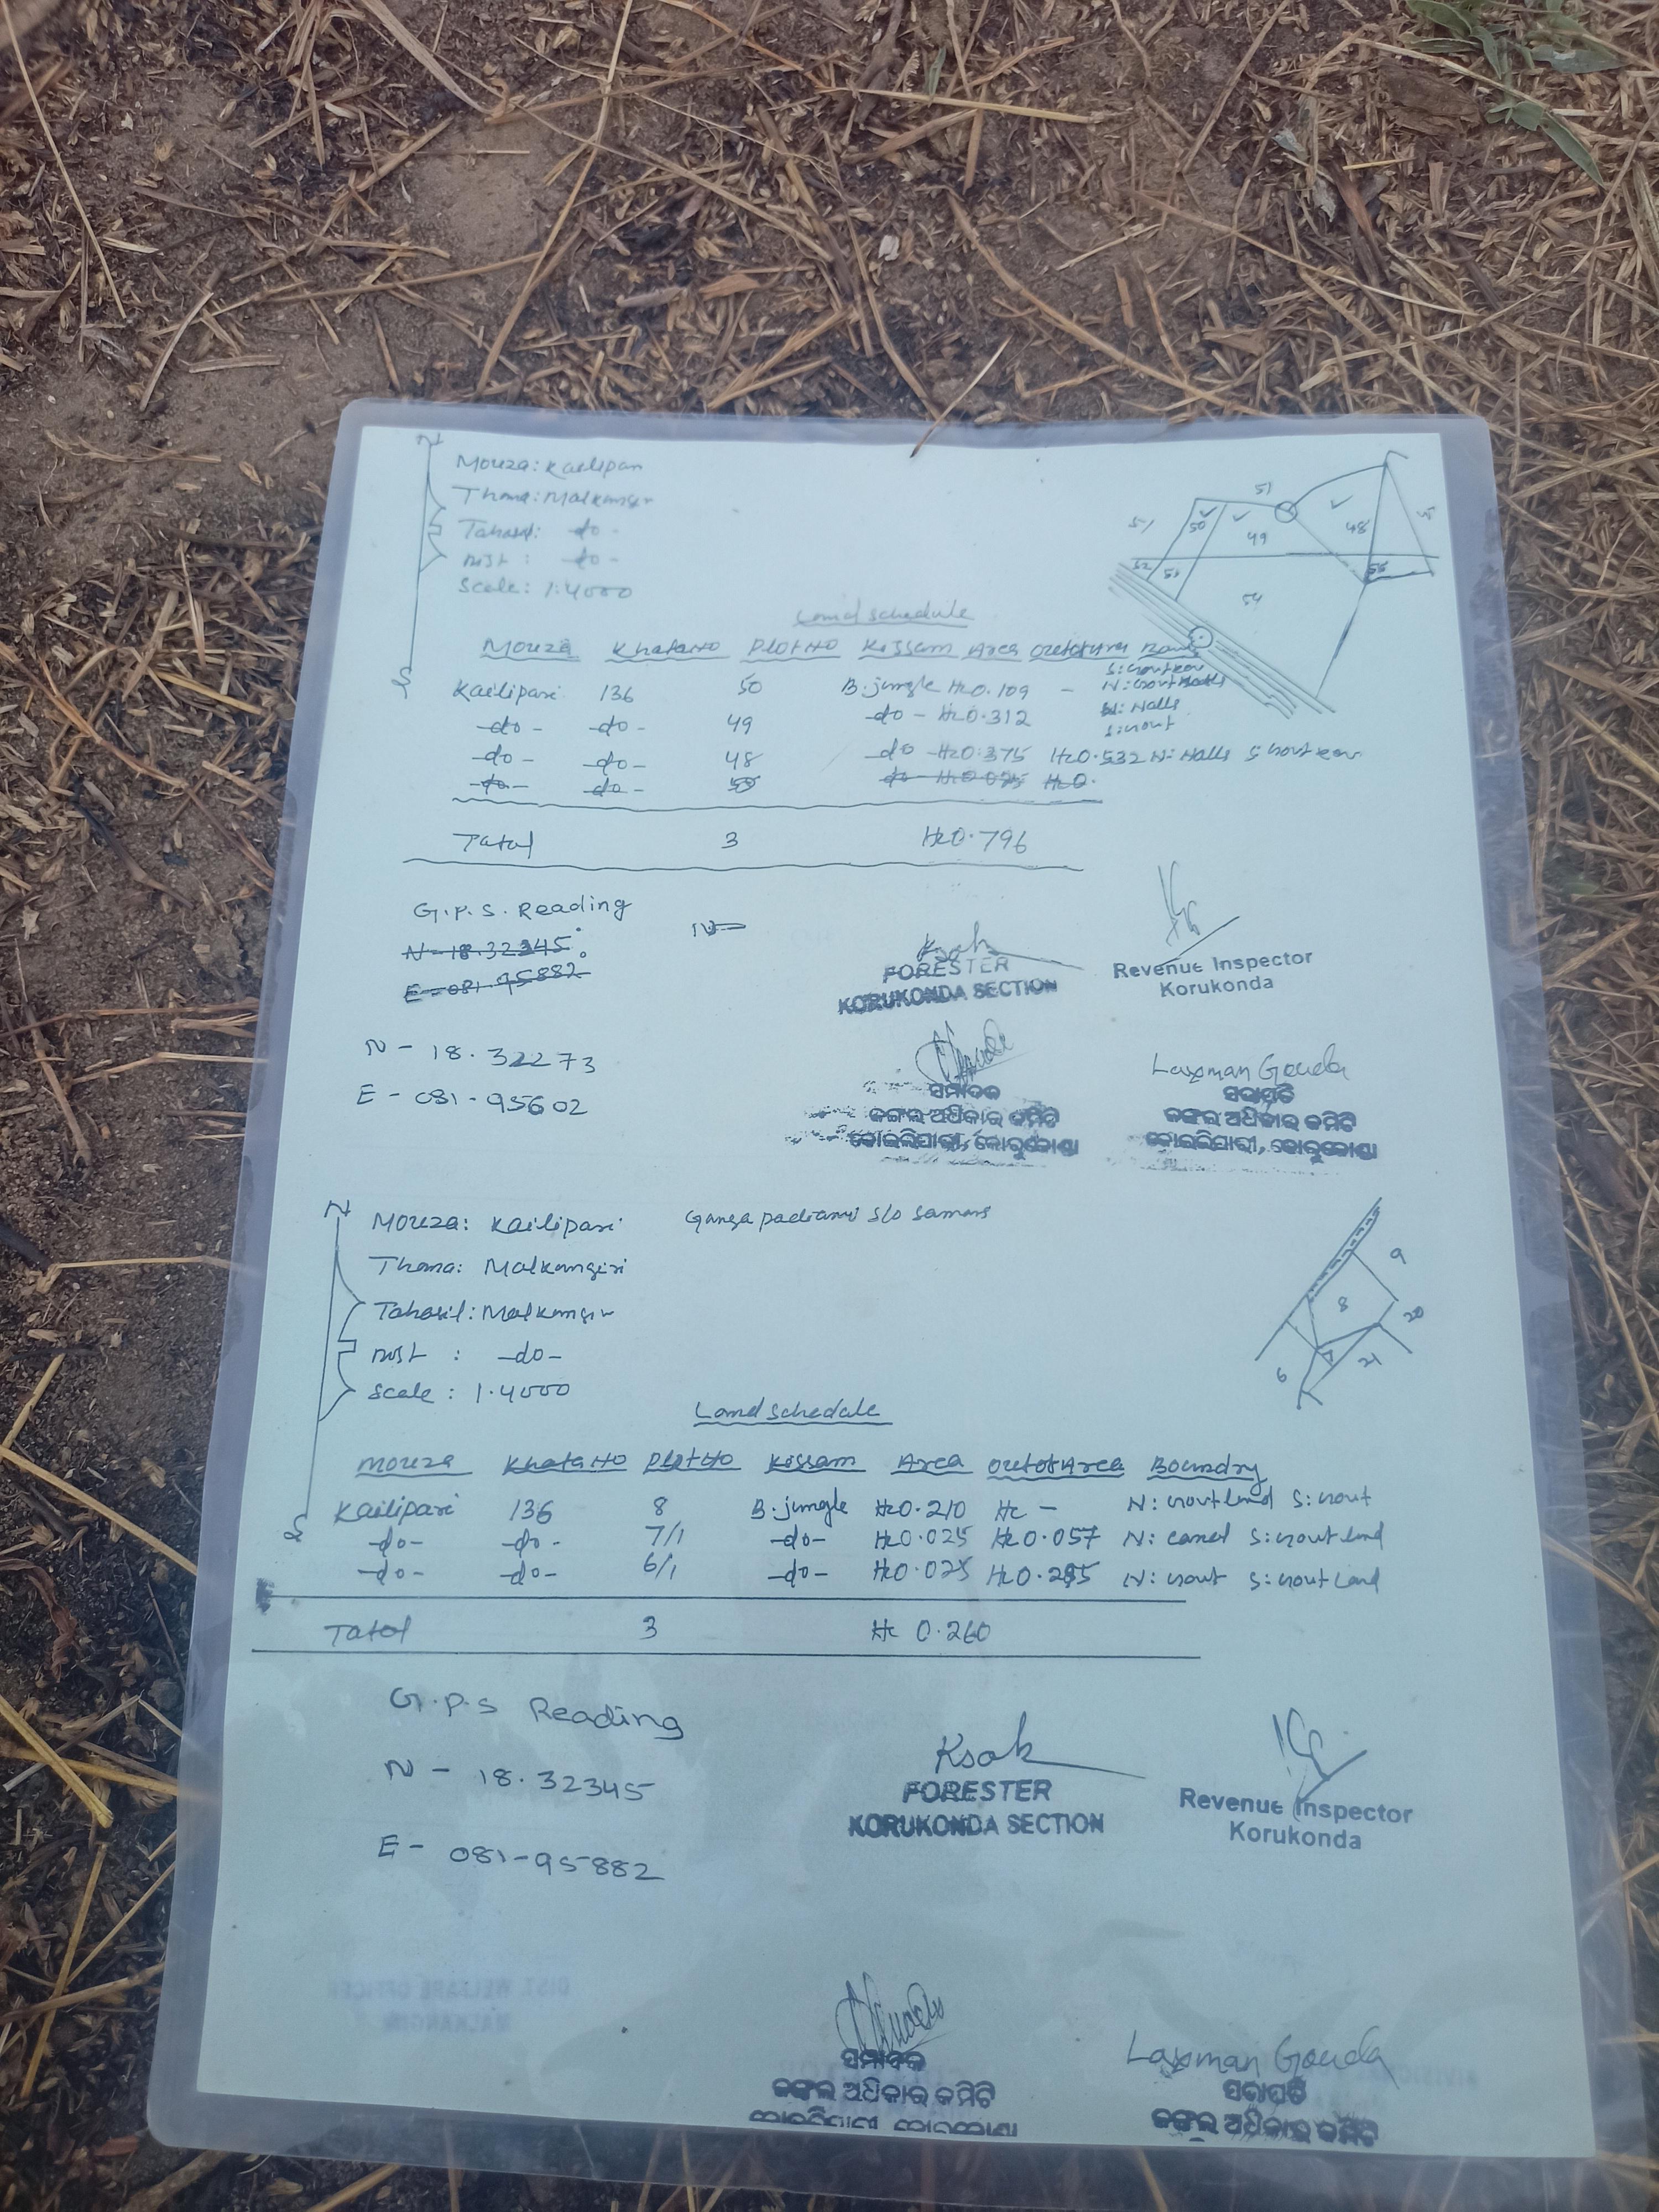 N
Mouza: Kailipari
Thana: Malkangiri
Tahasil: -do-
Dist : -do-
Scale: 1:4000
S
51
51
50
49
48
52
53
54
55
Land schedule
Mouza Khata No Plot No Kissam Area out of Area
Kailipari 136 50 B. jungle Hc 0.109 -
-do- -do- 49 -do- Hc 0.312
N: Nalla
-do- -do- 48 -do- Hc 0.375 Hc 0.532 N: Nalla
-do- -do- -do- Hc 0.025 Hc 0.
Total 3 Hc 0.796
G.P.S. Reading
N - 18.32345
E - 081.95882
N - 18.32273
E - 081-95602
Ksak
FORESTER
KORUKONDA SECTION
Revenue Inspector
Korukonda
ସମ୍ପାଦକ
ଜଙ୍ଗଲ ଅଧିକାର କମିଟି
କୋଇଲିପାରୀ, କୋରୁକୋଣ୍ଡା
Laxman Gouda
ସଭାପତି
ଜଙ୍ଗଲ ଅଧିକାର କମିଟି
କୋଇଲିପାରୀ, କୋରୁକୋଣ୍ଡା
N
Mouza: Kailipari Ganga padiami s/o Samara
Thana: Malkangiri
Tahasil: Malkangiri
Dist : -do-
Scale : 1.4000
S
9
8
20
7
21
6
Land schedule
Mouza Khata No Plot No Kissam Area out of Area Boundry
Kailipari 136 8 B. jungle Hc 0.210 Hc - N: Govt land S: Govt
-do- -do- 7/1 -do- Hc 0.025 Hc 0.057 N: canal S: Govt land
-do- -do- 6/1 -do- Hc 0.025 Hc 0.285 N: Govt S: Govt Land
Total 3 Hc 0.260
G.P.S Reading
N - 18.32345
E - 081-95882
Ksak
FORESTER
KORUKONDA SECTION
Revenue Inspector
Korukonda
ସମ୍ପାଦକ
ଜଙ୍ଗଲ ଅଧିକାର କମିଟି
Laxman Gouda
ସଭାପତି
ଜଙ୍ଗଲ ଅଧିକାର କମିଟି
DIST. WELFARE OFFICER
MALKANGIRI